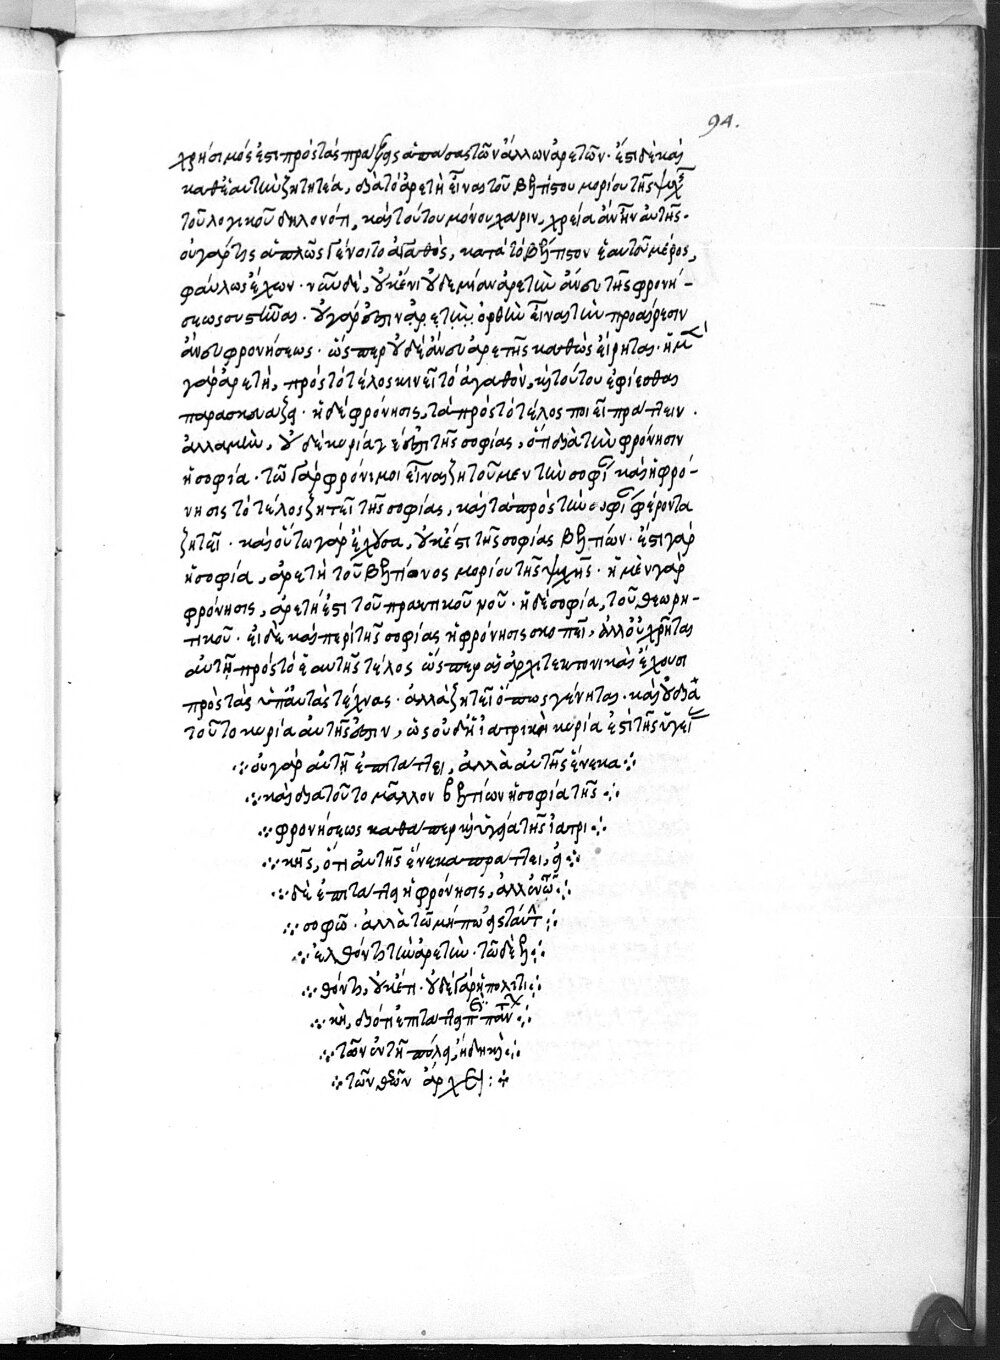 94.
χρήσιμός ἐστι πρὸς τὰς πράξεις ἁπάσας τῶν ἄλλων ἀρετῶν· ἔστι δὲ καὶ
καθ' ἑαυτὴν ζητητέα, διὰ τὸ ἀρετὴ εἶναι τοῦ βελτίστου μορίου τῆς ψυχῆς
τοῦ λογικοῦ δηλονότι, καὶ τούτου μόνου χάριν, χρεία ἂν ἦν αὐτῆς·
οὐ γάρ τις ἁπλῶς γένοιτο ἀγαθὸς, κατὰ τὸ βέλτιστον ἑαυτοῦ μέρος,
φαύλως ἔχων· νῦν δὲ, οὐκ ἔνι οὐδεμίαν ἀρετὴν ἄνευ τῆς φρονή-
σεως συστῆναι· οὐ γάρ ἐστιν ἀρετὴν ὀρθὴν εἶναι τὴν προαίρεσιν
ἄνευ φρονήσεως· ὥσπερ οὐδὲ ἄνευ ἀρετῆς καθὼς εἴρηται· ἡ μὲν
γὰρ ἀρετὴ, πρὸς τὸ τέλος κινεῖ τὸ ἀγαθὸν, καὶ τούτου ἐφίεσθαι
παρασκευάζει· ἡ δὲ φρόνησις, τὰ πρὸς τὸ τέλος ποιεῖ πράττειν·
ἀλλὰ μὴν, οὐδὲ κυρία γέ ἐστι τῆς σοφίας, ὅτι διὰ τὴν φρόνησιν
ἡ σοφία· τῷ γὰρ φρόνιμοι εἶναι ζητοῦμεν τὴν σοφίαν καὶ ἡ φρό-
νησις τὸ τέλος ζητεῖ τῆς σοφίας, καὶ τὰ πρὸς τὴν σοφίαν φέροντα
ζητεῖ· καὶ οὕτω γὰρ ἔχουσα, οὐκ ἔστι τῆς σοφίας βελτίων· ἔστι γὰρ
ἡ σοφία, ἀρετὴ τοῦ βελτίονος μορίου τῆς ψυχῆς· ἡ μὲν γὰρ
φρόνησις, ἀρετή ἐστι τοῦ πρακτικοῦ νοῦ· ἡ δὲ σοφία, τοῦ θεωρη-
τικοῦ· εἰ δὲ καὶ περὶ τῆς σοφίας ἡ φρόνησις σκοπεῖ, ἀλλ' οὐ χρῆται
αὐτῇ πρὸς τὸ ἑαυτῆς τέλος ὥσπερ αἱ ἀρχιτεκτονικαὶ ἔχουσι
πρὸς τὰς ὑπ' αὐτὰς τέχνας· ἀλλὰ ζητεῖ ὅπως γένηται· καὶ οὐ διὰ
τοῦτο κυρία αὐτῆς ἐστιν, ὡς οὐδ' ἡ ἰατρικὴ κυρία ἐστὶ τῆς ὑγείας
οὐ γὰρ αὐτῇ ἐπιτάττει, ἀλλὰ αὐτῆς ἕνεκα
καὶ διὰ τοῦτο μᾶλλον βελτίων ἡ σοφία τῆς
φρονήσεως καθάπερ καὶ ὑγεία τῆς ἰατρι
κῆς, ὅτι αὐτῆς ἕνεκα πράττει, εἰ
δὲ ἐπιτάττει ἡ φρόνησις, ἀλλ' οὐ τῷ
σοφῷ· ἀλλὰ τῷ μήπω εἰς ταύτην
ἐλθόντι τὴν ἀρετὴν· τῷ δὲ ἐλ
θόντι, οὐκέτι· οὐδὲ γὰρ ἡ πολιτι
κὴ, διότι ἐπιτάττει περὶ πάντων
τῶν ἐν τῇ πόλει, ἤδη καὶ
τῶν θεῶν ἄρχει:+